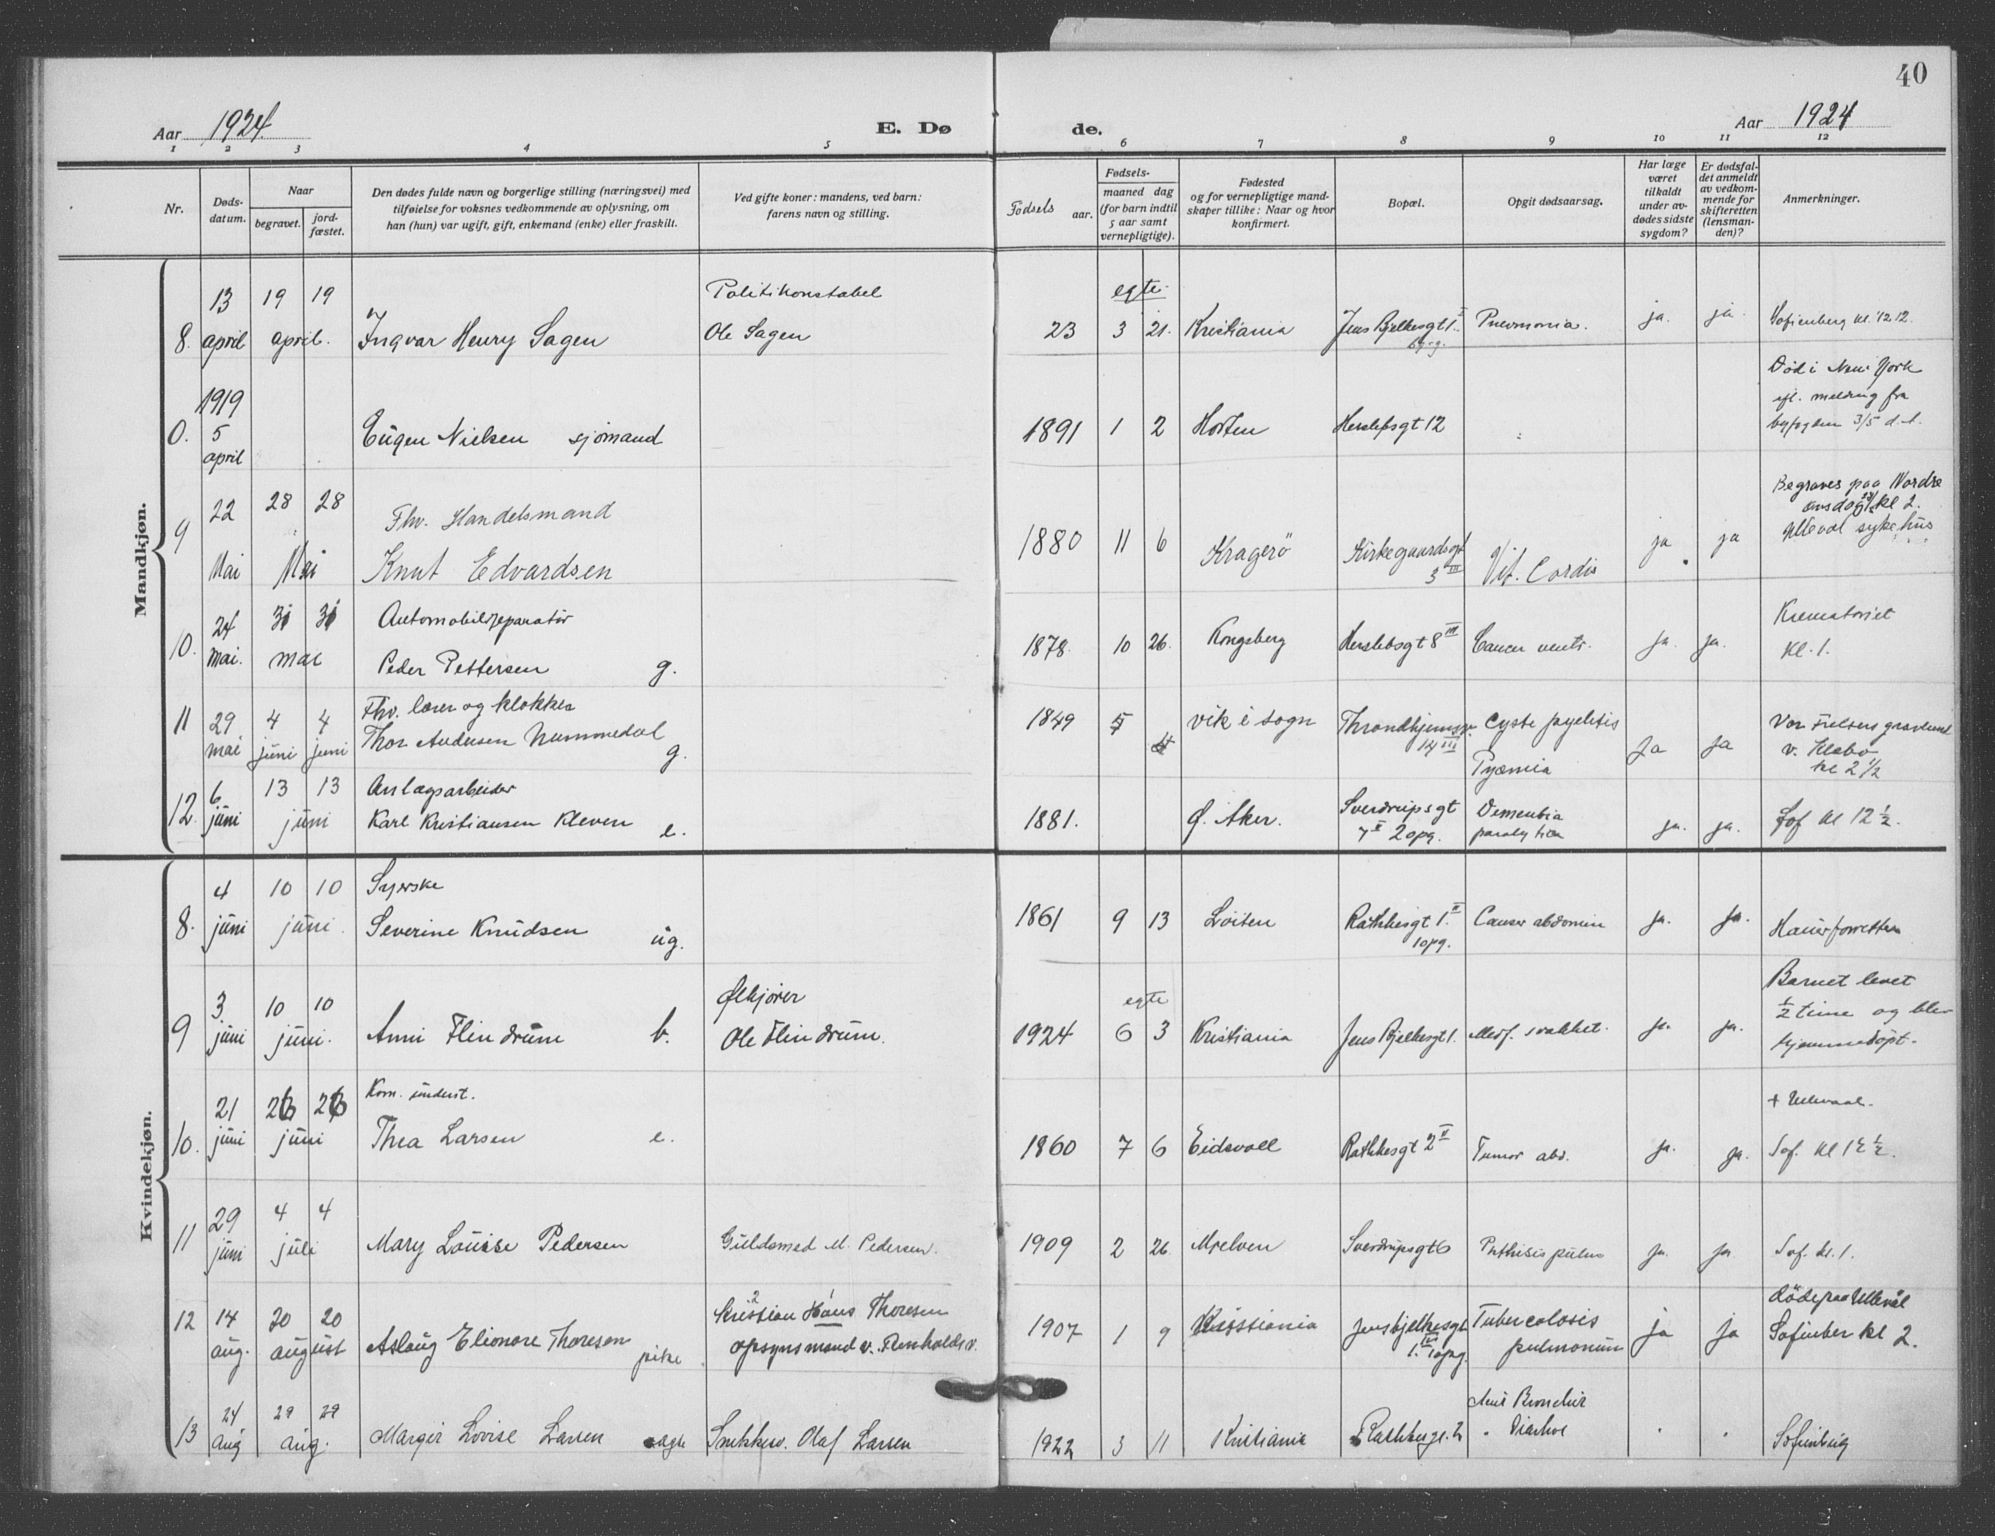 40
Aar 1924 E. Dø de. Aar 1924
1 2 3 4 5 6 7 8 9 10 11 12
Nr.
Døds-
datum.
Naar
begravet.
jord-
fæstet.
Den dødes fulde navn og borgerlige stilling (næringsvei) med
tilføielse for voksnes vedkommende av oplysning, om
han (hun) var ugift, gift, enkemand (enke) eller fraskilt.
Ved gifte koner: mandens, ved barn:
farens navn og stilling.
Fødsels aar.
Fødsels-
maaned dag
(for barn indtil
5 aar samt
vernepligtige).
Fødested
og for vernepligtige mand-
skaper tillike: Naar og hvor
konfirmert.
Bopæl.
Opgit dødsaarsag.
Har læge
været
tilkaldt
under av-
dødes sidste
sygdom?
Er dødsfal-
det anmeldt
av vedkom-
mende for
skifteretten
(lensman-
den)?
Anmerkninger.
Mandkjøn.
8. 13 april 19 19 april.
Ingvar Henry Sagen
Politikonstabel
Ole Sagen
egte.
23 3 21. Kristiania Jens Bjelkesgt 1. Pneumonia. ja. ja. Sofienberg kl. 12 12.
0. 1919 5 april
Eugen Nielsen sjømand
1891 1 2 Horten Herslebsgt 12
Død i New York
efl. melding fra
byfogden 3/5 d.å.
9 22 Mai 28 28 Mai
Fhv. Handelsmand
Knut Edvardsen
1880 11 6 Kragerö Kirkegaardsgt 3 III Vit. Cordis ja ja
Begraves paa Nordre
onsdag kl 2.
Ulleval sykehus
10. 24 mai. 31 31 mai
Automobilreparatør
Peder Pettersen g.
1878. 10 26. Kongsberg Herslebsgt 8 III Cancer ventr. ja. ja.
Krematoriet
kl. 1.
11 29 mai 4 juni 4 juni
Fhv. lærer og klokker
Thor Andersen Nummedal g.
1849 5 vik i sogn Throndhjemsv. 14 III Cyste pyelitis
Pyæmia ja ja
Vor Frelsers gravlund
kl 2 1/2
12. 6 juni 13 13 juni
Anlægsarbeider
Karl Kristiansen Kleven e.
1881. Ø. Aker. Sverdrupsgt
7 II 2 opg. Dementia
paralytica ja. ja. Sof kl 12 1/2.
Kvindekjøn.
8. 4 juni 10 10 juni.
Syerske
Severine Knudsen ug.
1861 9 13 Løiten Rathkesgt 1. II
1 opg. Cancer abdomin ja. ja.
9 3 juni 10 10 juni.
Anni Flindrum b.
Ølkjører
Ole Flindrum.
egte
1924 6 3 Kristiania Jens Bjelkesgt 1. Medf. svakhet. ja. ja.
Barnet levet
1/2 time og blev
hjemmedöpt.
10. 21 juni 26 26 juni
Kom. underst.
Thea Larsen e.
1860 7 6 Eidsvoll Rathkesgt 2 II Tumor abd. ja. ja.
+ Ullevaal.
Sof. kl 12 1/2.
11 29 juni 4 4 juli
Mary Louise Pedersen
Guldsmed M. Pedersen.
1909 2 26 Mjelven Sverdrupsgt 6 Phthisis pulm ja. ja. Sof. kl. 1.
12 14 aug. 20 20 august
Aslaug Elionore Thoresen pike
Kristian 2 Hans 1 Thoresen
opsynsmand v. Renholdsv.
1907 1 9 Kristiania Jens bjelkesgt
1. III 1 opg. Tubercolosis
pulmonum ja ja
døde paa Ulleval
Sofinber kl 2.
13 24 aug 29 29 aug.
Margit Lovise Larsen egte
Snekkersv. Olaf Larsen
1922 3 11 Kristiania Rathkesgt. 2
" Diarhoe " "
Sofienberg